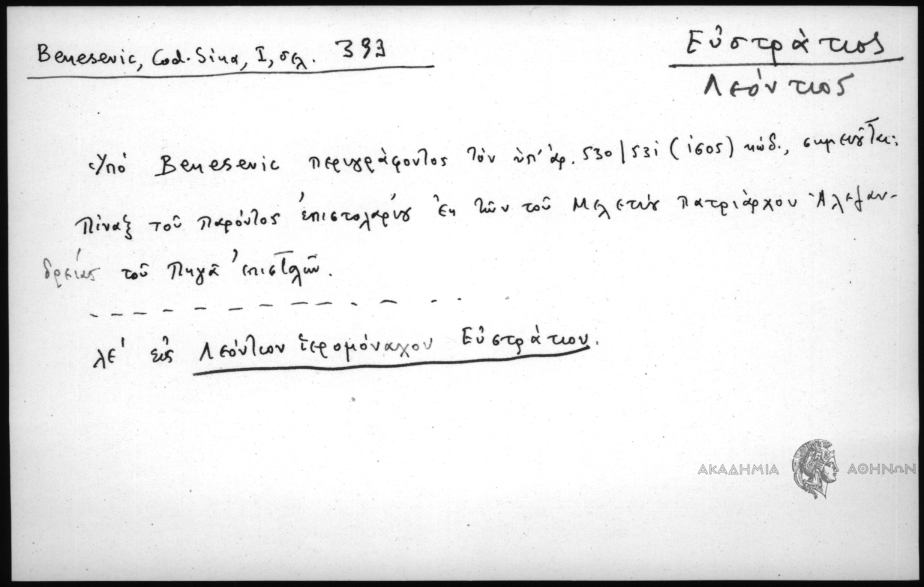 Benesevic, Cod. Sina, I, σελ. 393
Εὐστράτιος
Λεόντιος
Ὑπό Benesevic περιγράφοντος τόν ὑπ' ἀρ. 530/531 (ἰσος) κώδ., σημειοῦται:
Πίναξ τοῦ παρόντος ἐπιστολαρίου ἐκ τῶν τοῦ Μελετίου πατριάρχου Ἀλεξαν-
δρείας τοῦ Πηγᾶ ἐπιστολῶν.
λε' εἰς Λεόντιον ἱερομόναχον Εὐστράτιον.
ΑΚΑΔΗΜΙΑ ΑΘΗΝΩΝ